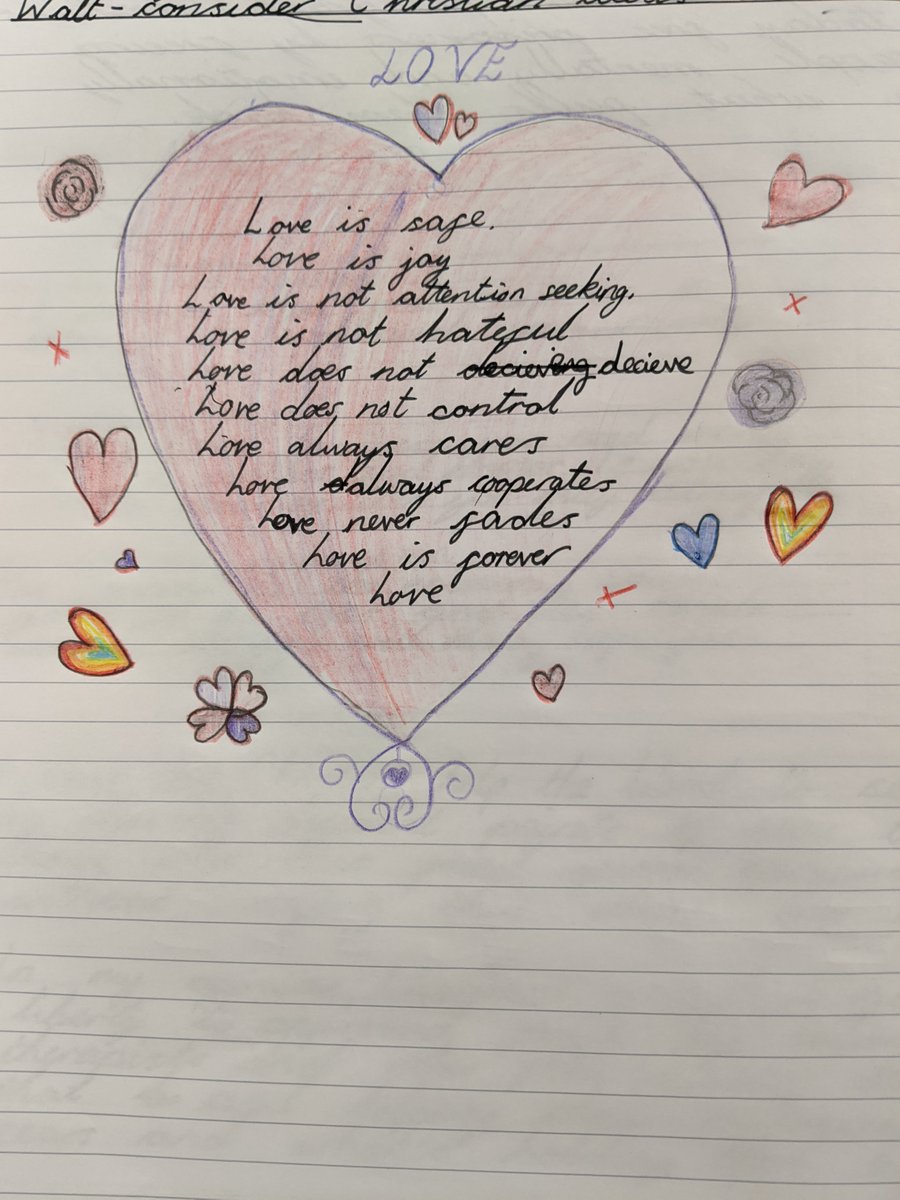 Walt - consider Christian
LOVE
Love is safe.
Love is joy
Love is not attention seeking.
Love is not hateful
Love does not decieving decieve
Love does not control
Love always cares
Love always cooperates
Love never fades
Love is forever
Love